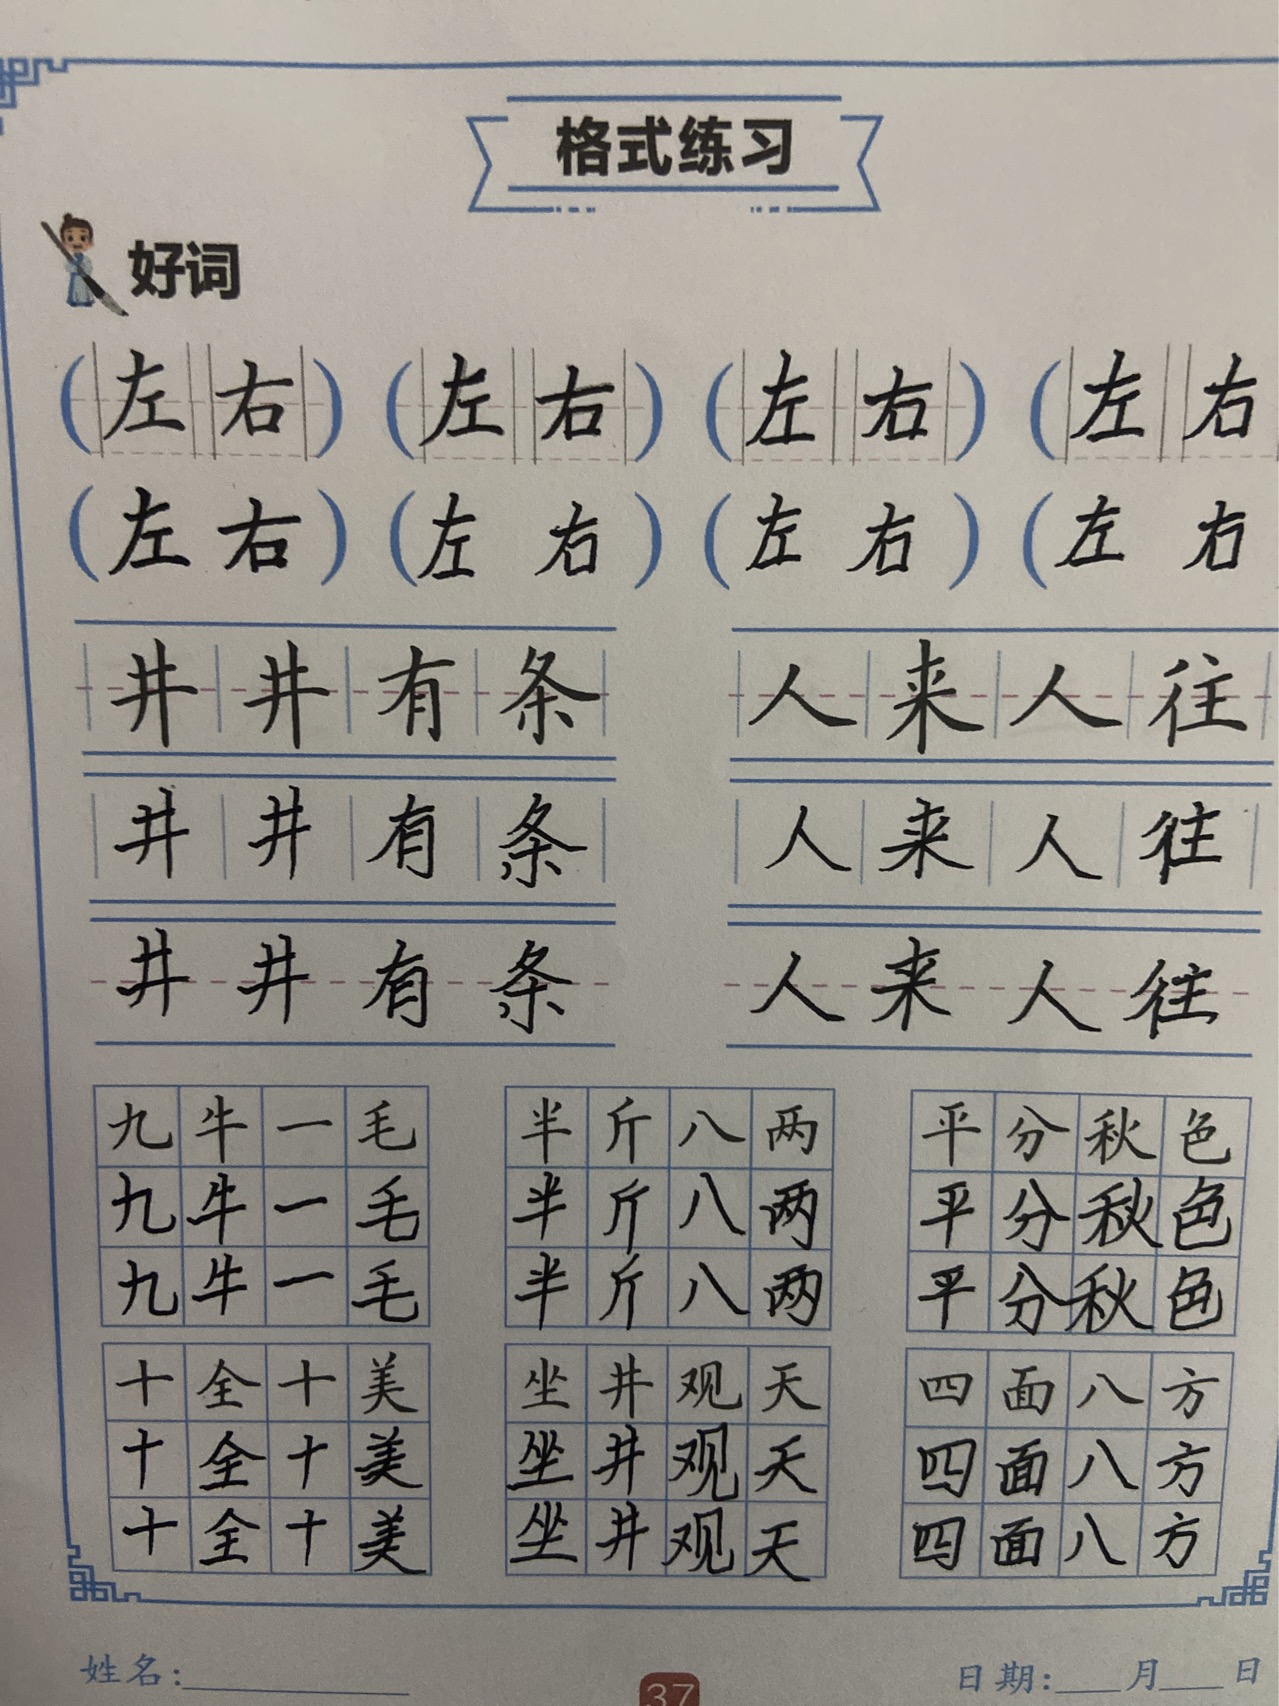 格式练习
好词
(左右) (左右) (左右) (左右
(左右) (左右) (左右) (左右
井井有条 人来人往
井井有条 人来人往
井井有条 人来人往
九牛一毛 半斤八两 平分秋色
九牛一毛 半斤八两 平分秋色
九牛一毛 半斤八两 平分秋色
十全十美 坐井观天 四面八方
十全十美 坐井观天 四面八方
十全十美 坐井观天 四面八方
姓名:________ 37 日期:___月___日